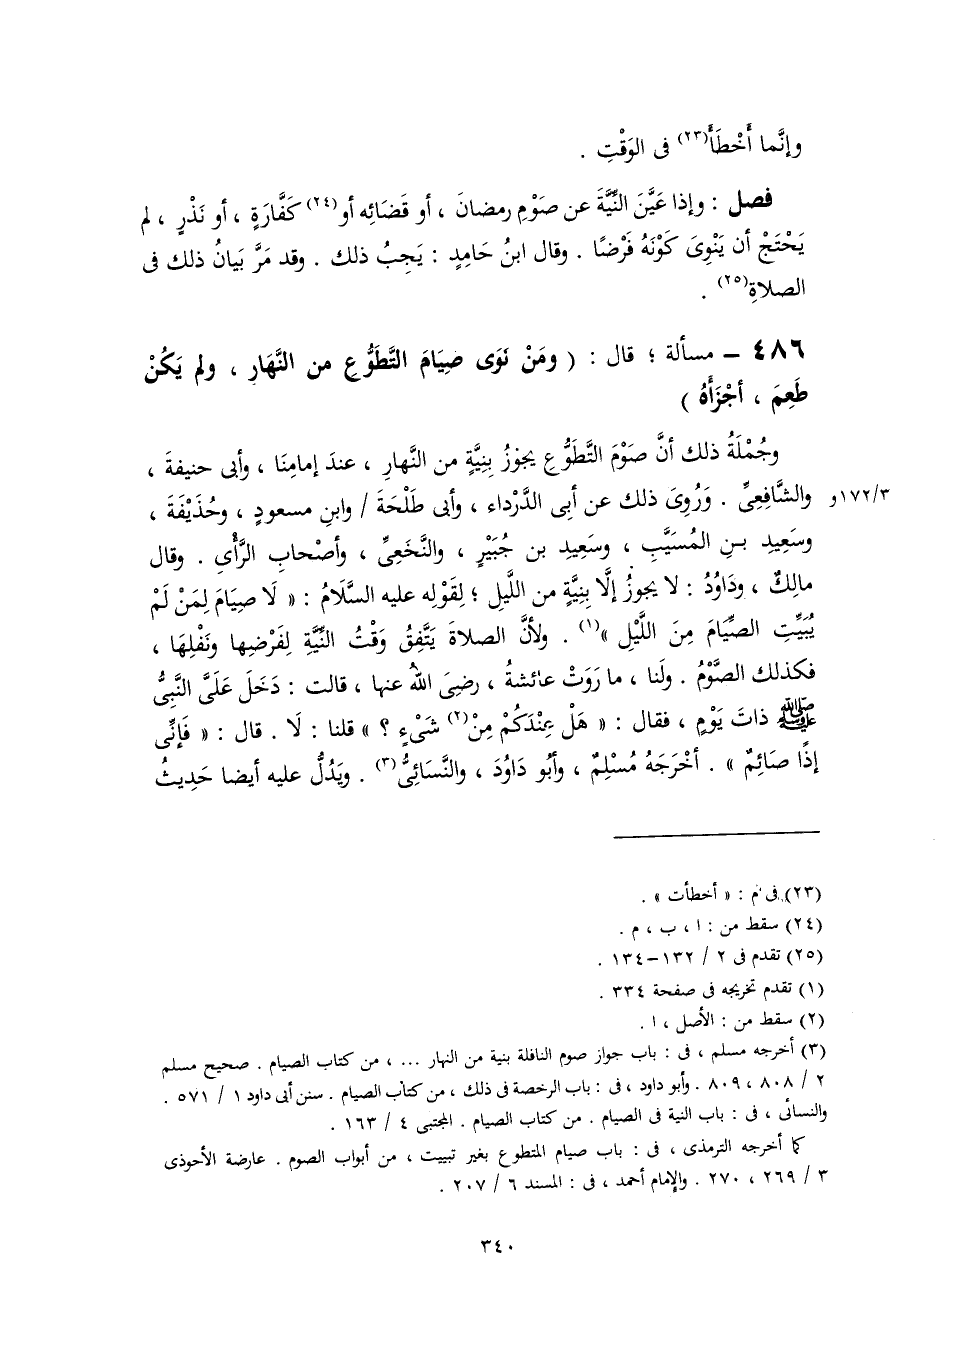 وإنَّما أَخْطَأَ(٢٣) فى الوَقْتِ .
فصل : وإذا عَيَّنَ النِّيَّةَ عن صَوْمِ رمضانَ ، أو قَضَائِه أو(٢٤) كَفَّارَةٍ ، أو نَذْرٍ ، لم
يَحْتَجْ أن يَنْوِىَ كَوْنَهُ فَرْضًا . وقال ابنُ حَامِدٍ : يَجِبُ ذلك . وقد مَرَّ بَيانُ ذلك فى
الصلاةِ(٢٥) .
٤٨٦ – مسألة ؛ قال : ( ومَنْ نَوَى صِيَامَ التَّطَوُّعِ من النَّهَارِ ، ولم يَكُنْ
طَعِمَ ، أجْزَأَهُ )
وجُمْلَةُ ذلك أنَّ صَوْمَ التَّطَوُّعِ يجوزُ بِنِيَّةٍ من النَّهارِ ، عندَ إمامِنَا ، وأبى حنيفةَ ،
١٧٢/٣و والشَّافِعِىِّ . وَرُوِىَ ذلك عن أبِى الدَّرْداء ، وأبى طَلْحَةَ / وابنِ مسعودٍ ، وحُذَيْفَةَ ،
وسَعِيدِ بنِ المُسَيَّبِ ، وسَعِيدِ بن جُبَيْرٍ ، والنَّخَعِىِّ ، وأصْحابِ الرَّأْىِ . وقال
مالِكٌ ، ودَاوُدُ : لا يجوزُ إلَّا بِنِيَّةٍ من اللَّيلِ ؛ لِقَوْلِه عليه السَّلَامُ : « لَا صِيَامَ لِمَنْ لَمْ
يُبَيِّتِ الصِّيَامَ مِنَ اللَّيْلِ »(١) . ولأنَّ الصلاةَ يَتَّفِقُ وَقْتُ النِّيَّةِ لِفَرْضِها ونَفْلِهَا ،
فكذلك الصَّوْمُ . ولَنا ، ما رَوَتْ عائشةُ ، رضىَ اللهُ عنها ، قالت : دَخَلَ عَلَىَّ النَّبِىُّ
ﷺ ذاتَ يَوْمٍ ، فقال : « هَلْ عِنْدَكُمْ مِنْ(٢) شَىْءٍ ؟ » قلنا : لَا . قال : « فَإِنِّى
إذًا صَائِمٌ » . أخْرَجَهُ مُسْلِمٌ ، وأبُو دَاوُدَ ، والنَّسَائِىُّ(٣) . ويَدُلُّ عليه أيضا حَدِيثُ
(٢٣) فى م : « أخطأت » .
(٢٤) سقط من : ا ، ب ، م .
(٢٥) تقدم فى ٢ / ١٣٢–١٣٤ .
(١) تقدم تخريجه فى صفحة ٣٣٤ .
(٢) سقط من : الأصل ، ا .
(٣) أخرجه مسلم ، فى : باب جواز صوم النافلة بنية من النهار ... ، من كتاب الصيام . صحيح مسلم
٢ / ٨٠٨ ، ٨٠٩ . وأبو داود ، فى : باب الرخصة فى ذلك ، من كتاب الصيام . سنن أبى داود ١ / ٥٧١ .
والنسائى ، فى : باب النية فى الصيام . من كتاب الصيام . المجتبى ٤ / ١٦٣ .
كما أخرجه الترمذى ، فى : باب صيام المتطوع بغير تبييت ، من أبواب الصوم . عارضة الأحوذى
٣ / ٢٦٩ ، ٢٧٠ . والإمام أحمد ، فى : المسند ٦ / ٢٠٧ .
٣٤٠